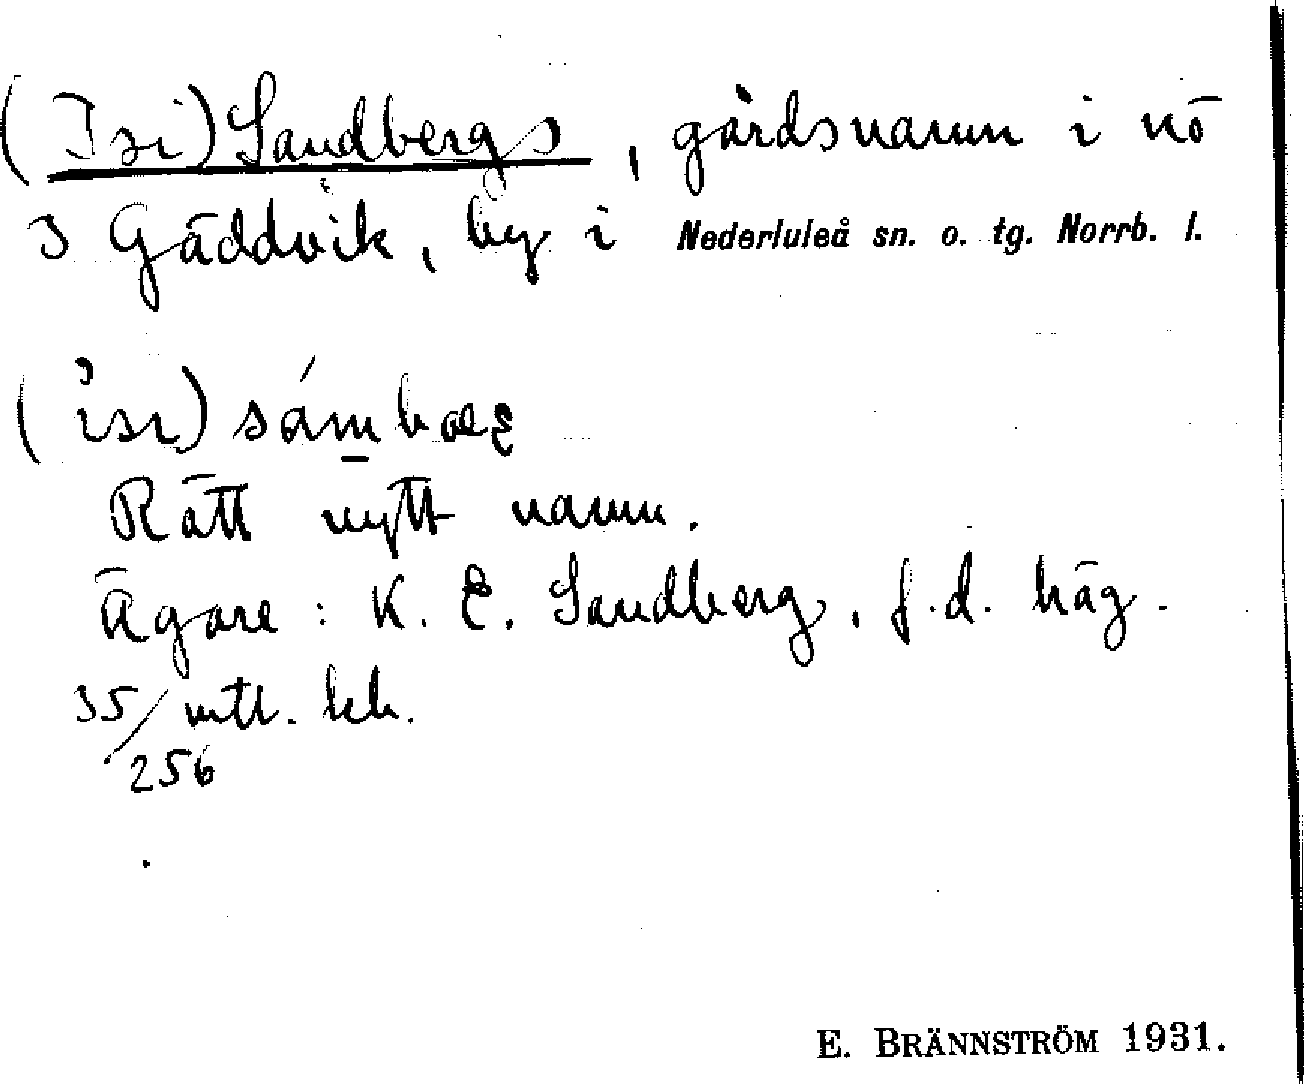 (Isi)Sandbergs, gårdsnamn i nö
3 Gäddvik, by i Nederluleå sn. o. tg. Norrb. l.
Rätt nytt namn.
Ägare: K. E. Sandberg, f.d. häg.
35/256 mtl.
E. BRÄNNSTRÖM 1931.